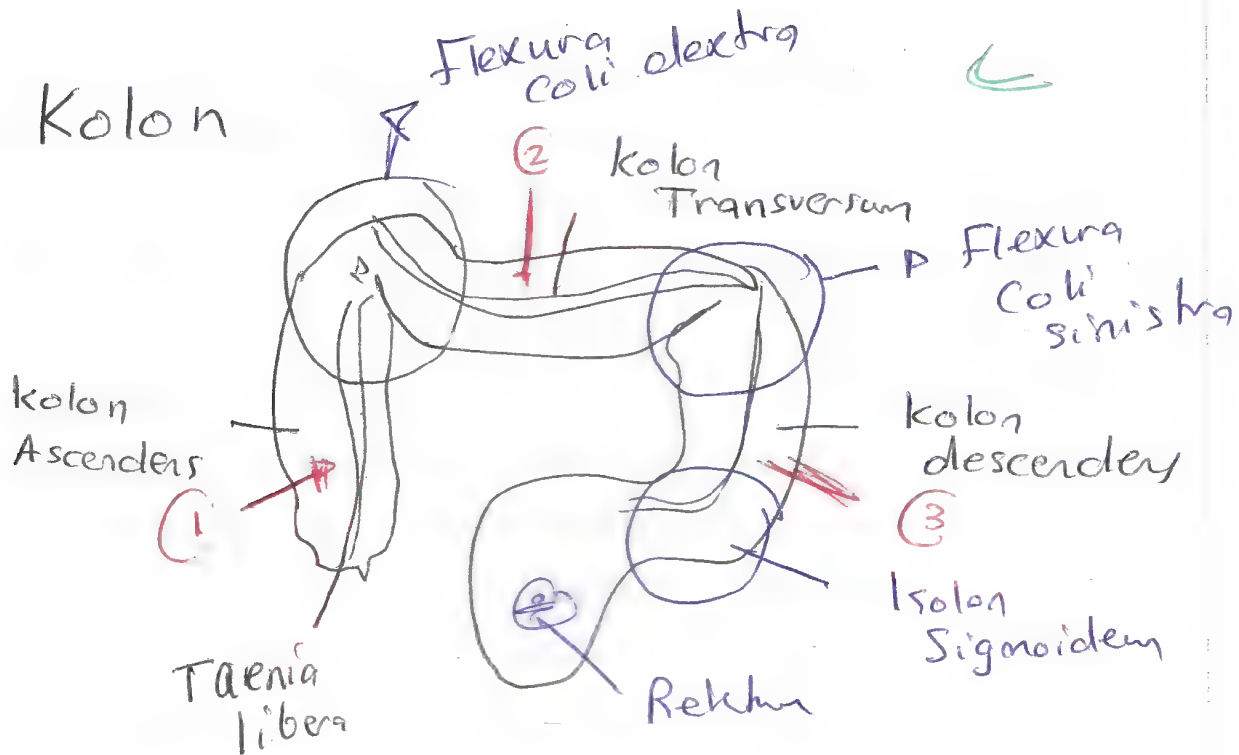 Flexura
coli dextra
Kolon
2
kolon
Transversum
Flexura
Coli
sinistra
kolon
Ascendens
1
kolon
descendens
3
kolon
Sigmoideum
Taenia
libera
Rektum